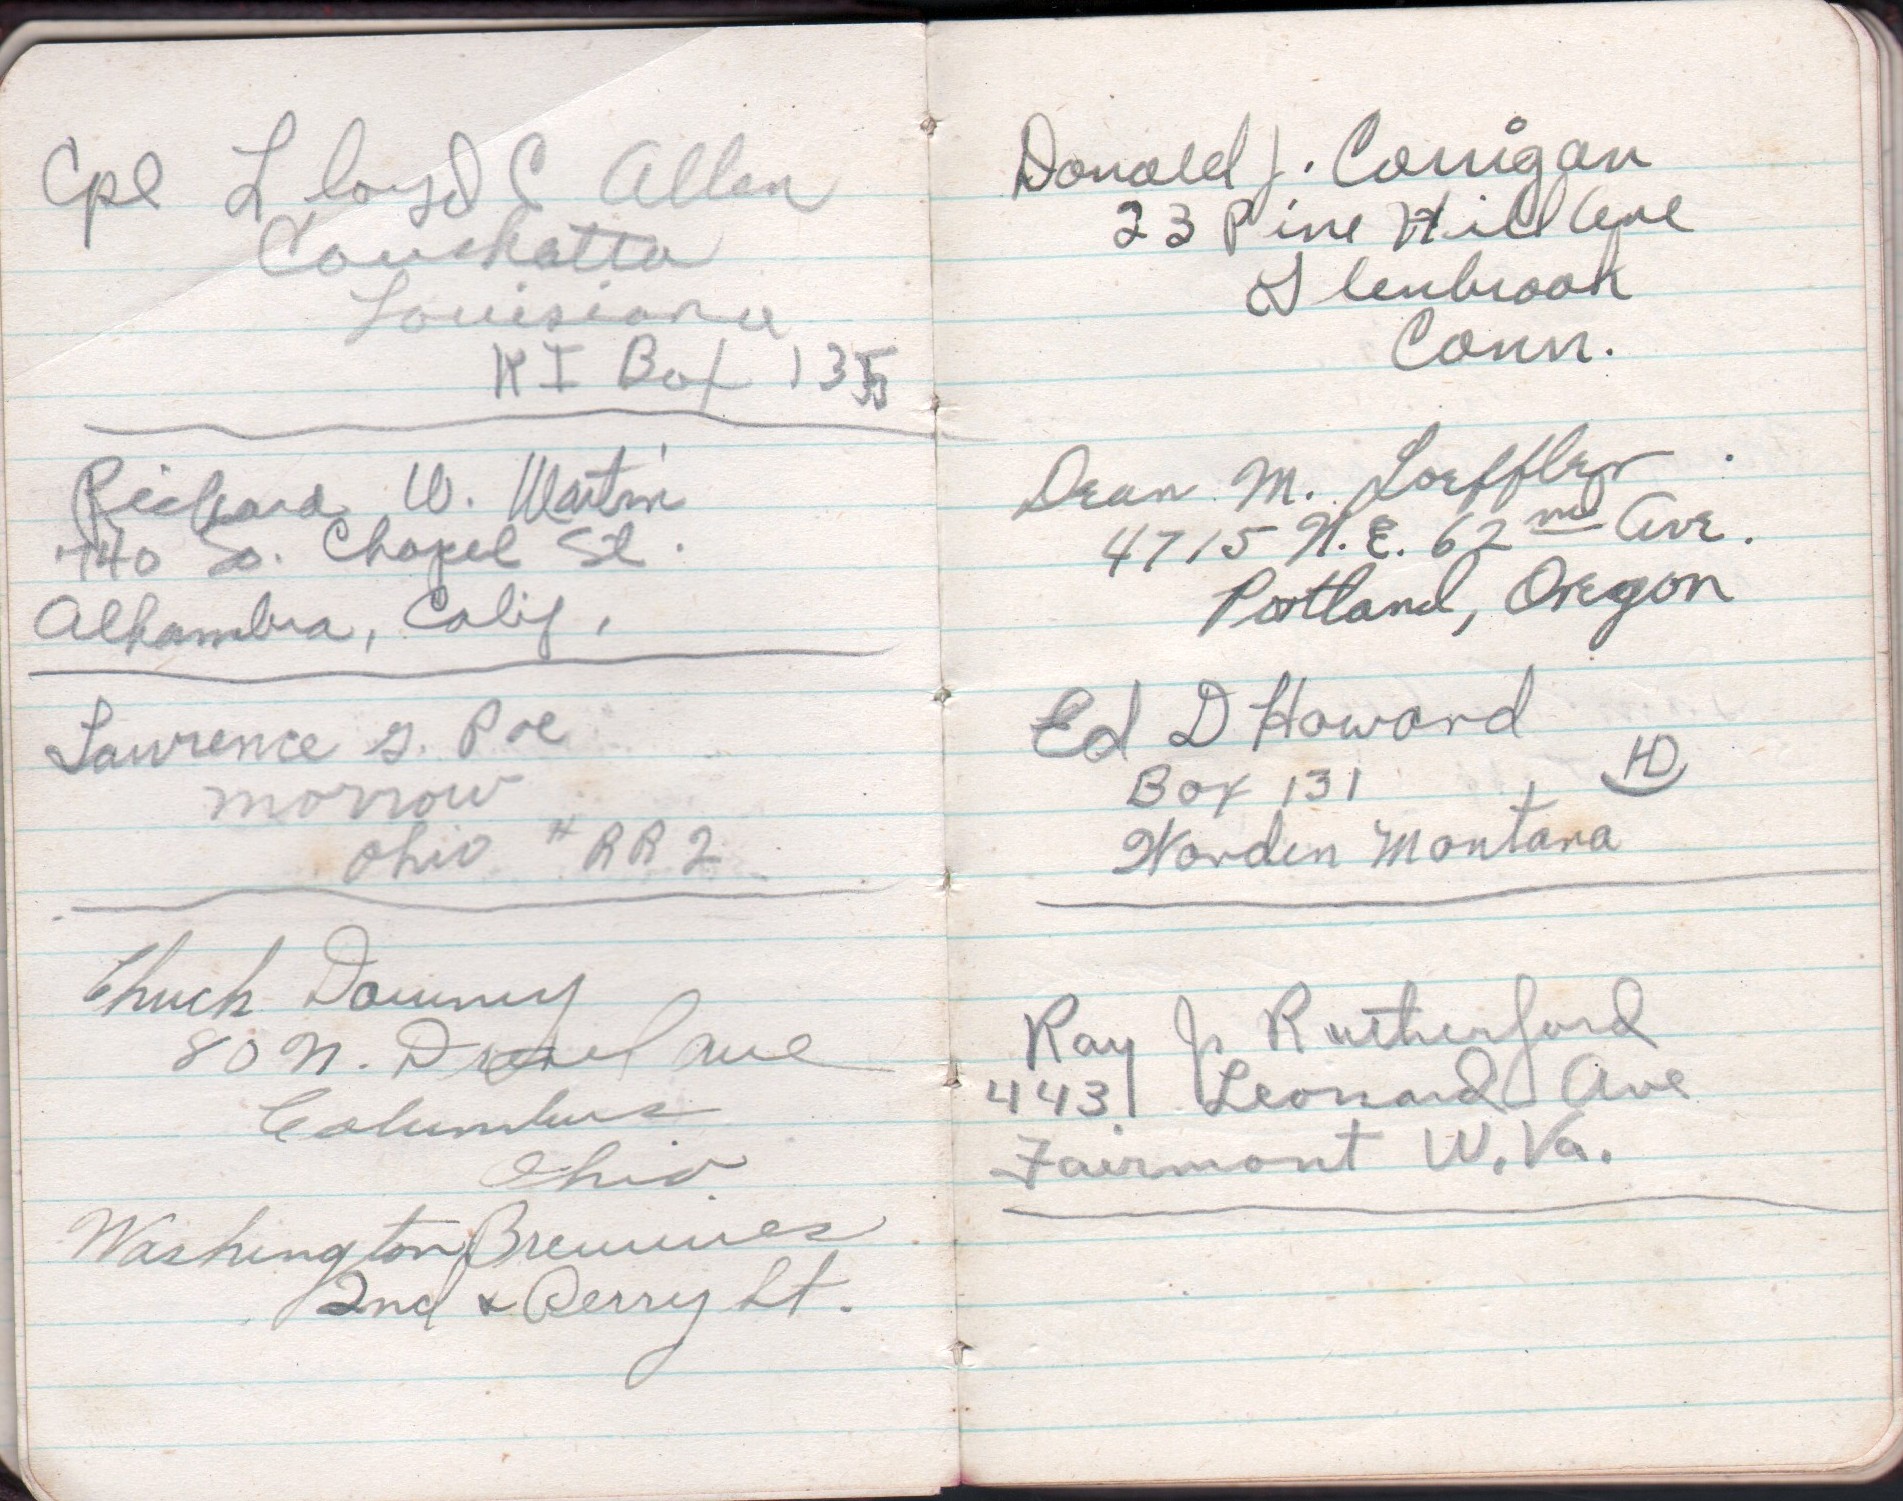 Cpl Lloyd C Allen
Coushatta
Louisiana
R I Box 135
Richard W. Martin
740 So. Chapel St.
Alhambra, Calif.
Lawrence G. Poe
Morrow
Ohio # RR 2
Chuck Downey
80 N. Drexel Ave
Columbus
Ohio
Washington Breweries
2nd & Perry St.
Donald J. Corrigan
23 Pine Hill Ave
Glenbrook
Conn.
Dean M. Loeffler
4715 N.E. 62nd Ave.
Portland, Oregon
Ed D Howard
Box 131
HD
Worden Montana
Ray Jr Rutherford
443 Leonard Ave
Fairmont W. Va.